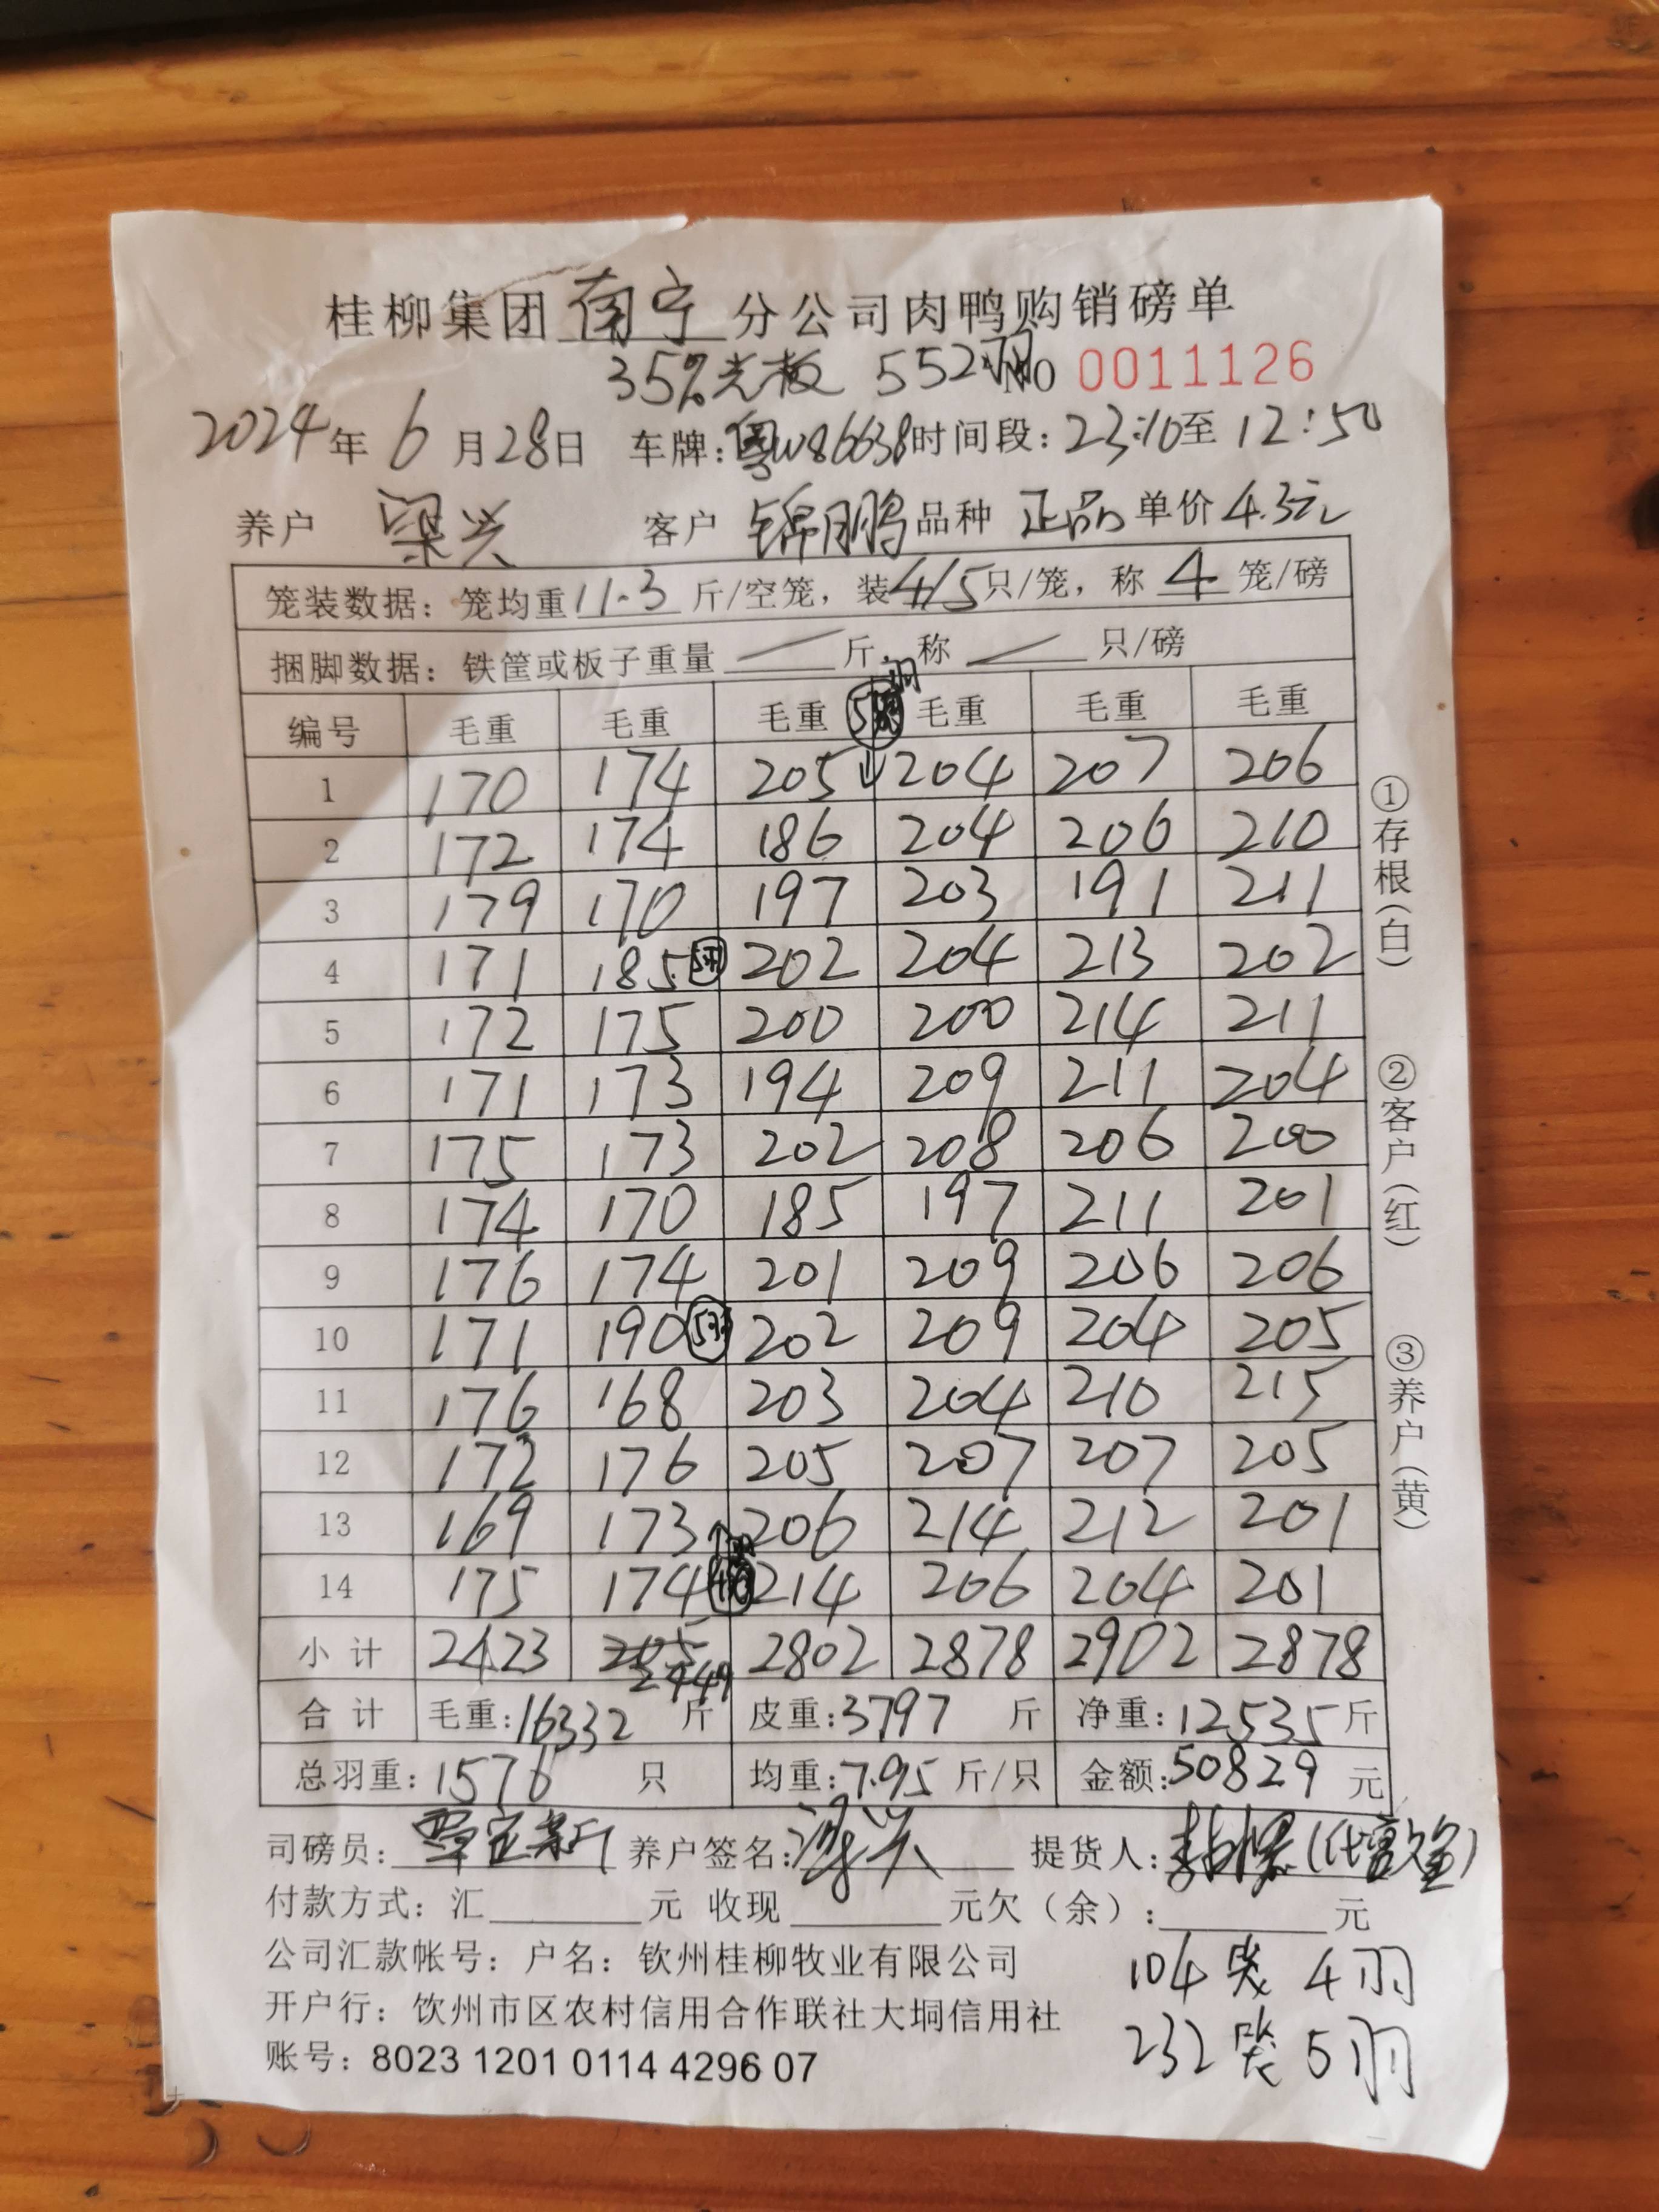 桂柳集团 南宁 分公司肉鸭购销磅单
35%光板 552羽 NO 0011126
2024年 6 月28日 车牌:粤W86638 时间段:23:10至 12:50
养户 梁兴 客户 锦鹏 品种 正品 单价 4.3元
笼装数据: 笼均重 11.3 斤/空笼, 装 4/5 只/笼, 称 4 笼/磅
捆脚数据: 铁筐或板子重量 — 斤, 称 — 只/磅
编号 毛重 毛重 毛重 毛重 毛重 毛重
1 170 174 205 204 207 206
2 172 174 186 204 206 210
3 179 170 197 203 191 211
4 171 185 5羽 202 204 213 202
5 172 175 200 200 214 211
6 171 173 194 209 211 204
7 175 173 202 208 206 200
8 174 170 185 197 211 201
9 176 174 201 209 206 206
10 171 190 5羽 202 209 204 205
11 176 168 203 204 210 215
12 172 176 205 207 207 205
13 169 173 206 214 212 201
14 175 174 214 206 204 201
小计 2423 2449 2802 2878 2902 2878
合计 毛重:16332 斤 皮重:3797 斤 净重:12535斤
总羽重:1576 只 均重:7.95 斤/只 金额:50829 元
司磅员: 养户签名:梁兴 提货人:
付款方式: 汇 元 收现 元欠(余): 元
公司汇款帐号: 户名: 钦州桂柳牧业有限公司
104笼 4羽
开户行: 饮州市区农村信用合作联社大垌信用社
232笼 5羽
账号: 8023 1201 0114 4296 07
①存根(白)
②客户(红)
③养户(黄)